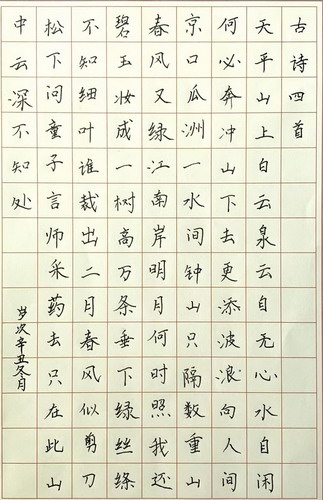 古诗四首
天平山上白云泉云自无心水自闲
何必奔冲山下去更添波浪向人间
京口瓜洲一水间钟山只隔数重山
春风又绿江南岸明月何时照我还
碧玉妆成一树高万条垂下绿丝绦
不知细叶谁裁出二月春风似剪刀
松下问童子言师采药去只在此山
中云深不知处
岁次辛丑冬月